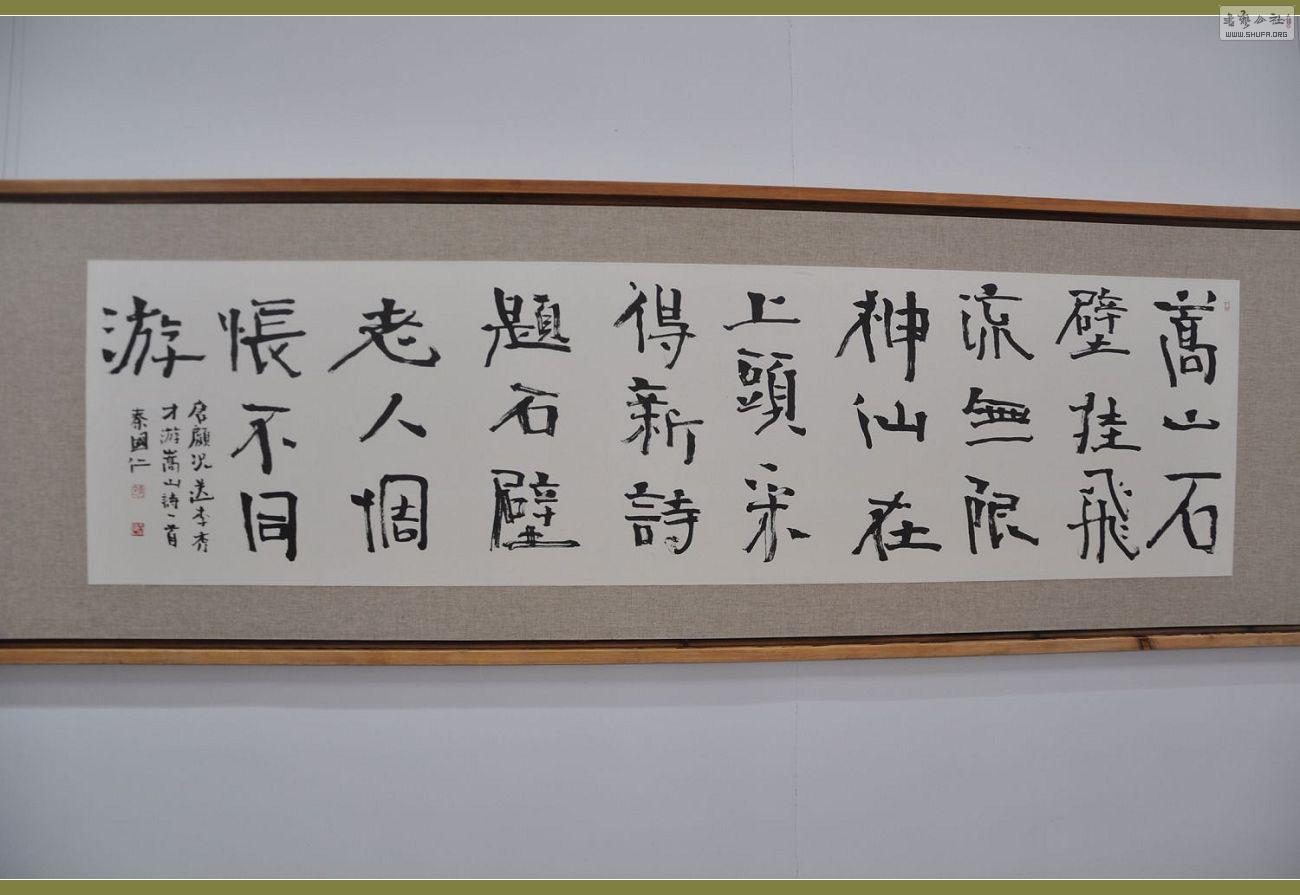 嵩山石
壁挂飛
流無限
神仙在
上頭采
得新詩
題石壁
老人惆
悵不同
游
唐顧況送李秀
才游嵩山詩一首
秦國仁
書藝公社
WWW.SHUFA.ORG